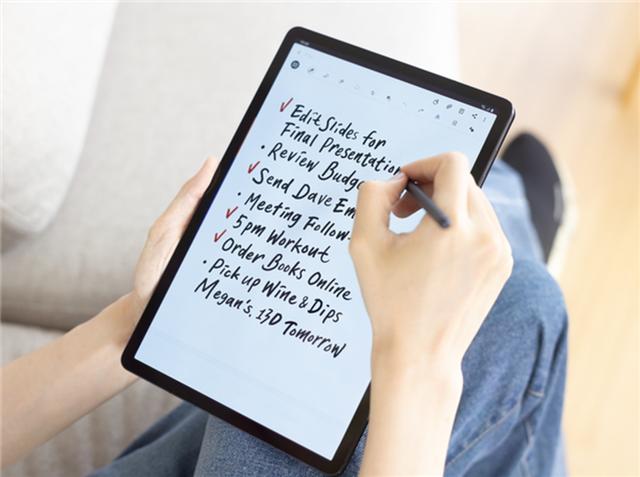 ✓ Edit Slides for
Final Presentation
• Review
✓ Send Dave
• Meeting
✓ 5pm Workout
✓ Order Books Online
• Pick up Wine & Dips
Megan's, 13D Tomorrow